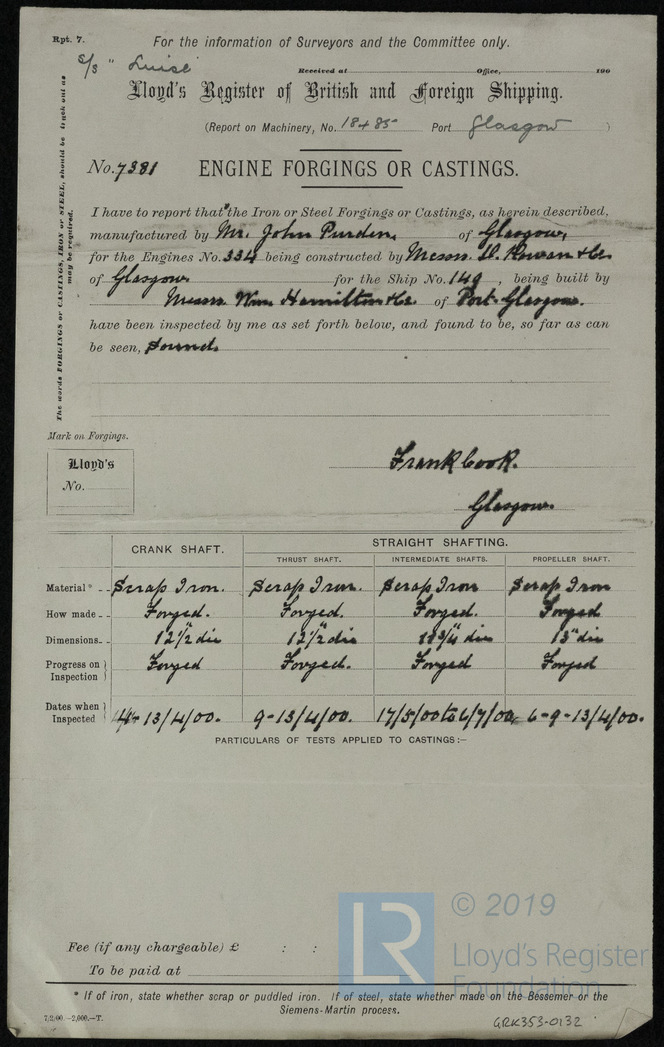 Rpt. 7.
For the information of Surveyors and the Committee only.
S/S "Luise"
Received at Office, 190
Lloyd's Register of British and Foreign Shipping.
(Report on Machinery, No. 18485 Port Glasgow )
No. 7381 ENGINE FORGINGS OR CASTINGS.
The words FORGINGS or CASTINGS, IRON or STEEL, should be struck out as may be required.
I have to report that the Iron or Steel Forgings or Castings, as herein described,
manufactured by Mr. John Purden, of Glasgow,
for the Engines No. 334 being constructed by Messrs. D. Rowan & Co.
of Glasgow for the Ship No. 149, being built by
Messrs Wm Hamilton & Co. of Port-Glasgow.
have been inspected by me as set forth below, and found to be, so far as can
be seen, sound.
Mark on Forgings.
Lloyd's
No.
Frank Cook.
Glasgow.
CRANK SHAFT. STRAIGHT SHAFTING.
THRUST SHAFT. INTERMEDIATE SHAFTS. PROPELLER SHAFT.
Material* Scrap Iron. Scrap Iron. Scrap Iron Scrap Iron
How made Forged. Forged. Forged. Forged
Dimensions 12½ dia 12½ dia 11¾ dia 13" dia
Progress on Inspection Forged Forged. Forged Forged
Dates when Inspected 4-13/4/00. 9-13/4/00. 17/5/00 to 6/7/00 6-9-13/4/00.
PARTICULARS OF TESTS APPLIED TO CASTINGS:—
Fee (if any chargeable) £ : :
To be paid at
* If of iron, state whether scrap or puddled iron. If of steel, state whether made on the Bessemer or the
Siemens-Martin process.
7,2,00.—2,000.—T.
GRK353-0132
LR
© 2019
Lloyd's Register
Foundation